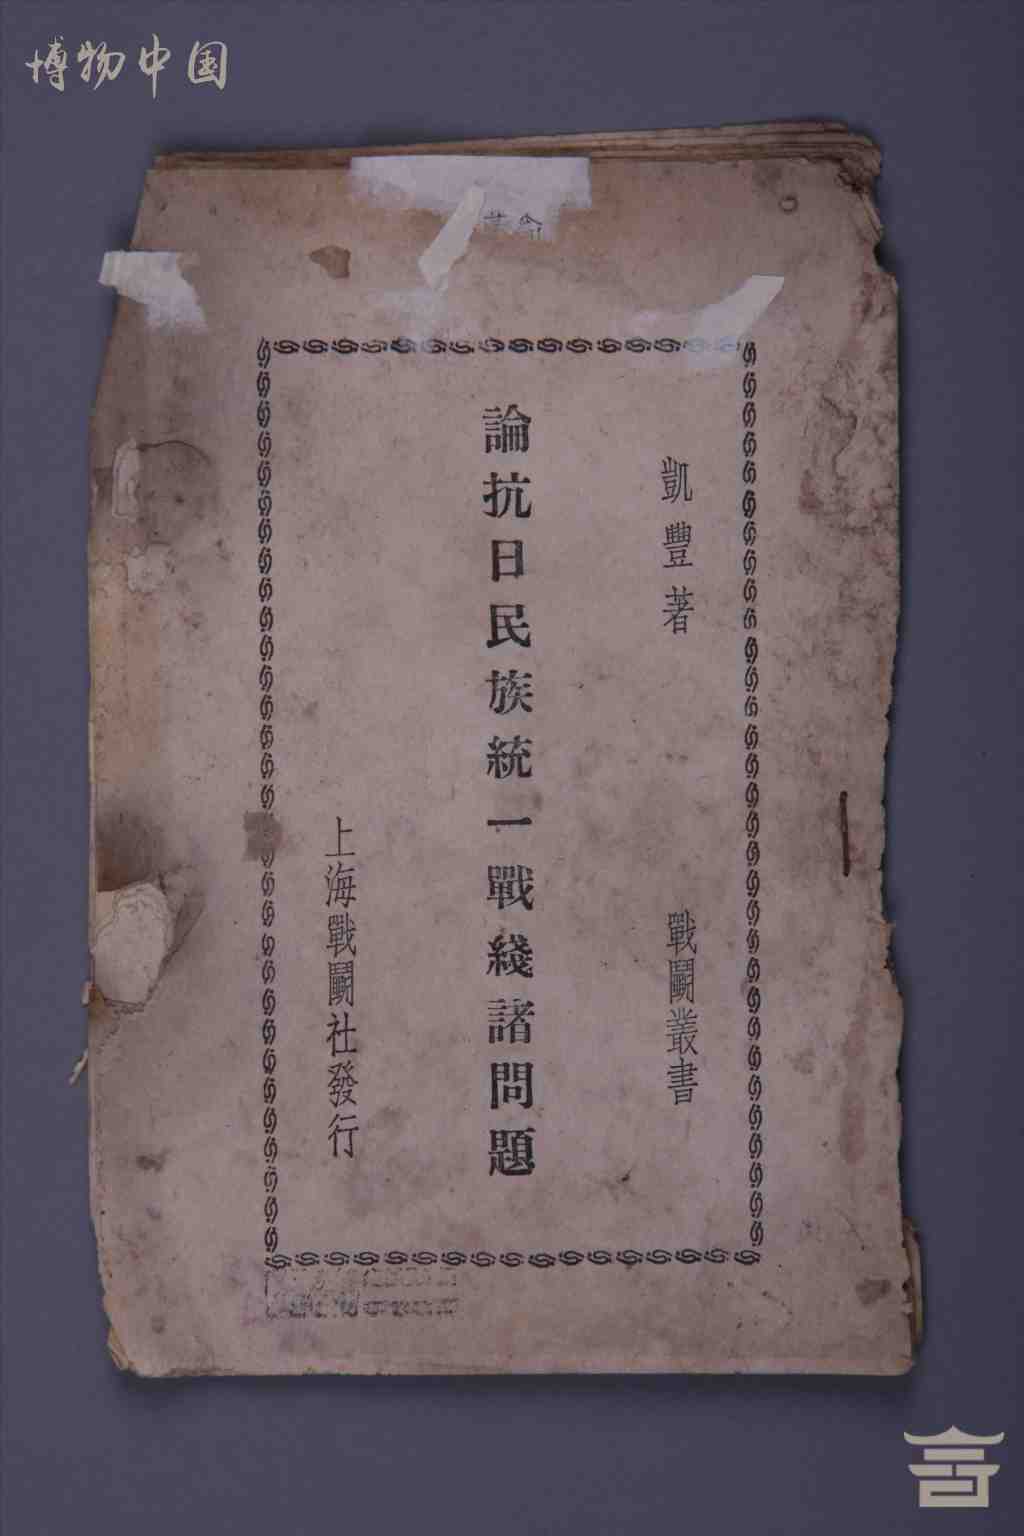 博物中国
革命
凱豐著
戰鬭叢書
論抗日民族統一戰綫諸問題
上海戰鬭社發行